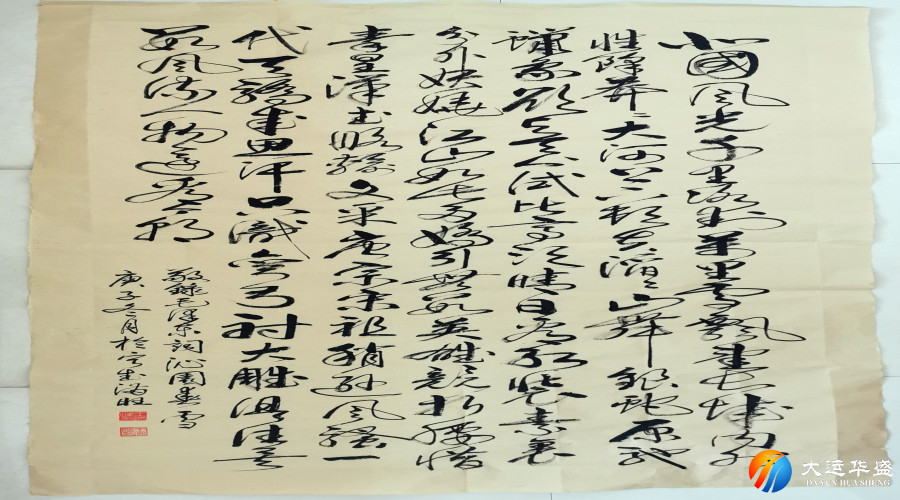 北國风光千里冰封萬里雪飘望长城内外
惟馀莽莽大河上下顿失滔滔山舞银蛇原驰
蜡象欲与天公试比高须晴日看红装素裹
分外妖娆江山如此多娇引無数英雄竞折腰惜
秦皇漢武略输文采唐宗宋祖稍逊风骚一
代天骄成吉思汗只識弯弓射大雕俱往矣
数风流人物还看今朝
敬錄毛泽东词沁園春雪
庚子月於
大运华盛
DAYUN HUASHENG